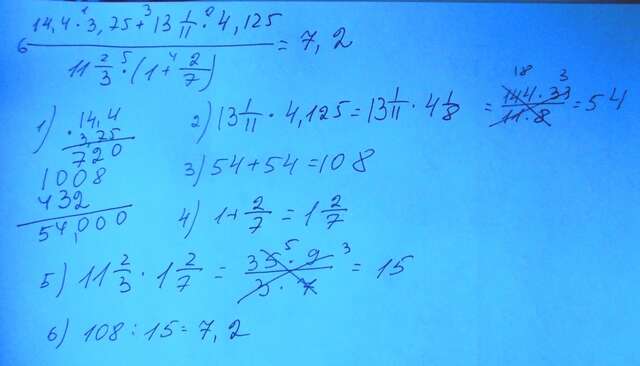 14,4 · 3,75 + 13 1/11 · 4,125
1 3 2
6 ———— = 7,2
11 2/3 · (1 + 2/7)
5 4
1) 14,4
· 3,75
720
1008
432
54,000
2) 13 1/11 · 4,125 = 13 1/11 · 4 1/8 = 144 · 33 / 11 · 8 = 54
18 3
3) 54 + 54 = 108
4) 1 + 2/7 = 1 2/7
5) 11 2/3 · 1 2/7 = 35 · 9 / 3 · 7 = 15
5 3
6) 108 : 15 = 7,2